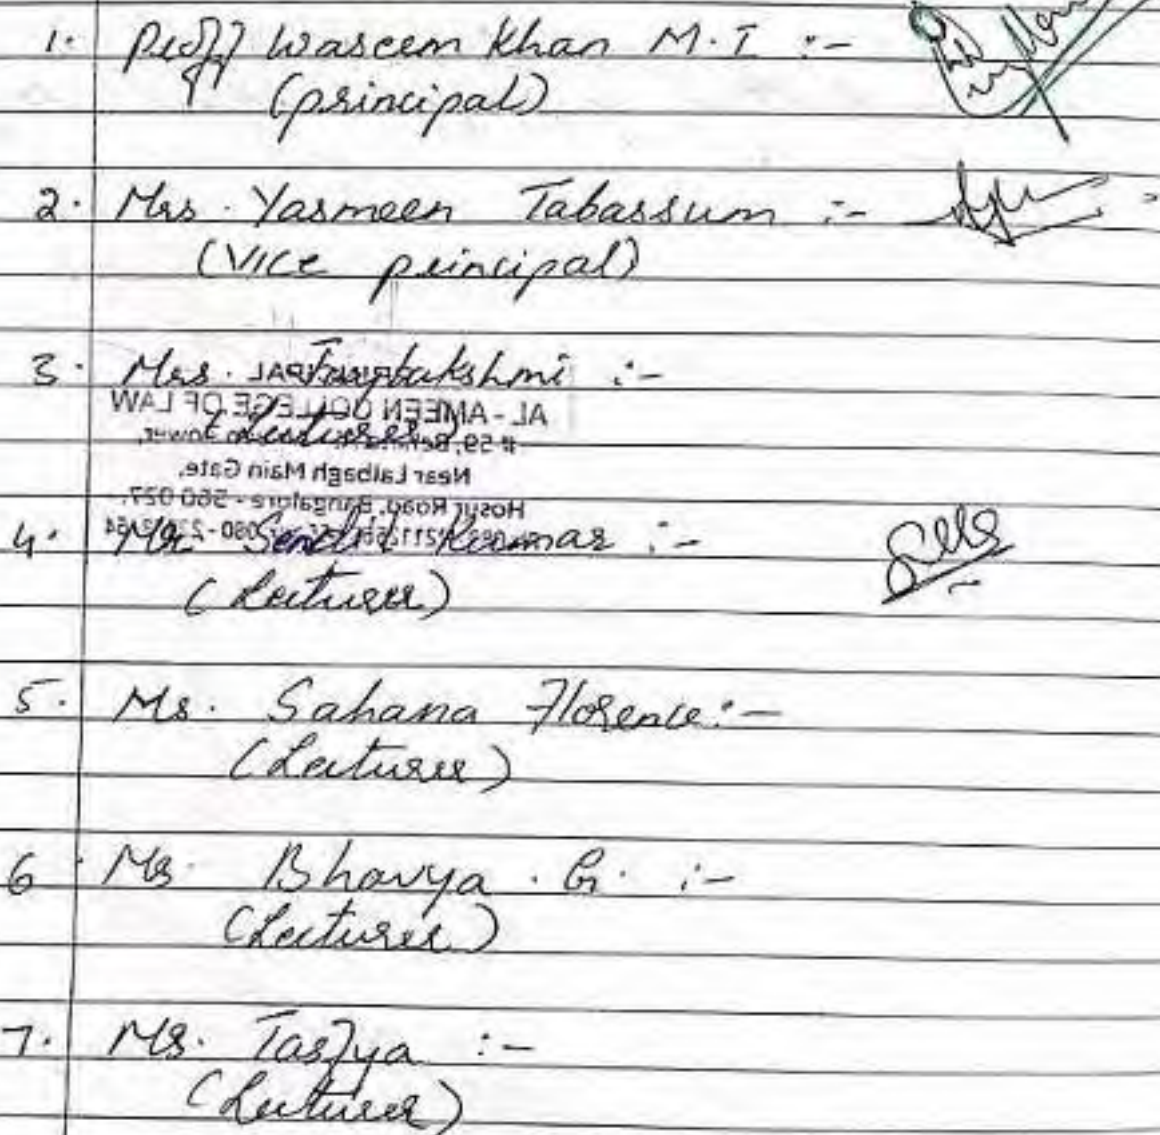 1. Proff Waseem Khan M.I :-
(principal)
2. Mrs. Yasmeen Tabassum :-
(Vice principal)
3. Mrs. :-
PRINCIPAL
AL-AMEEN COLLEGE OF LAW
(Lecturer)
# 59,
Near Lalbagh Main Gate,
Hosur Road, Bangalore - 560 027.
4. Mr. Senthil Kumar :-
(Lecturer)
5. Ms. Sahana Florence :-
(Lecturer)
6. Ms. Bhavya . G. :-
(Lecturer)
7. Ms. Tasfya :-
(Lecturer)